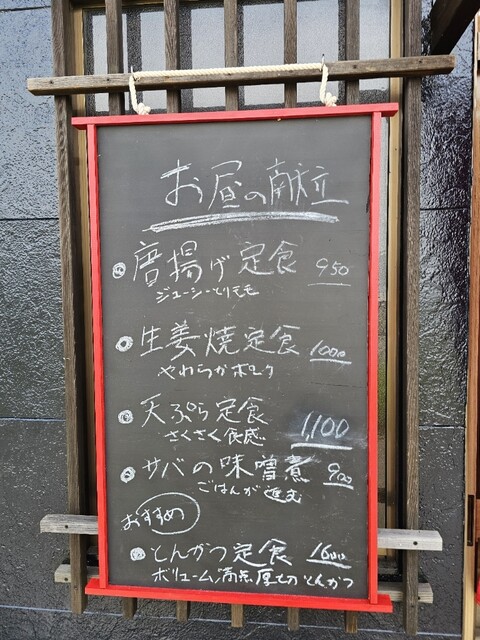 お昼の献立
唐揚げ定食 950
ジューシーとりモモ
生姜焼定食 1000
やわらかポーク
天ぷら定食 1,100
さくさく食感
サバの味噌煮 900
ごはんが進む
おすすめ
とんかつ定食 1600
ボリューム満点厚切のとんかつ